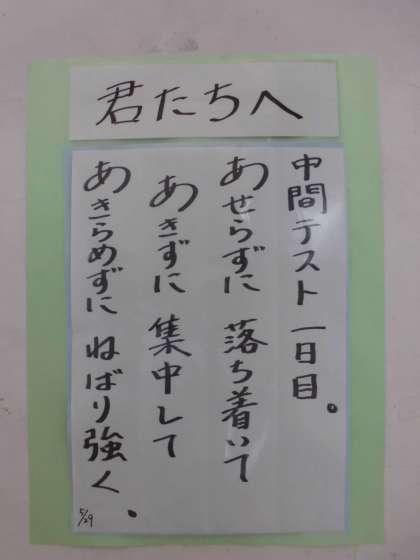 君たちへ
中間テスト一日目。
あせらずに 落ち着いて
あきずに 集中して
あきらめずに ねばり強く。
5/29